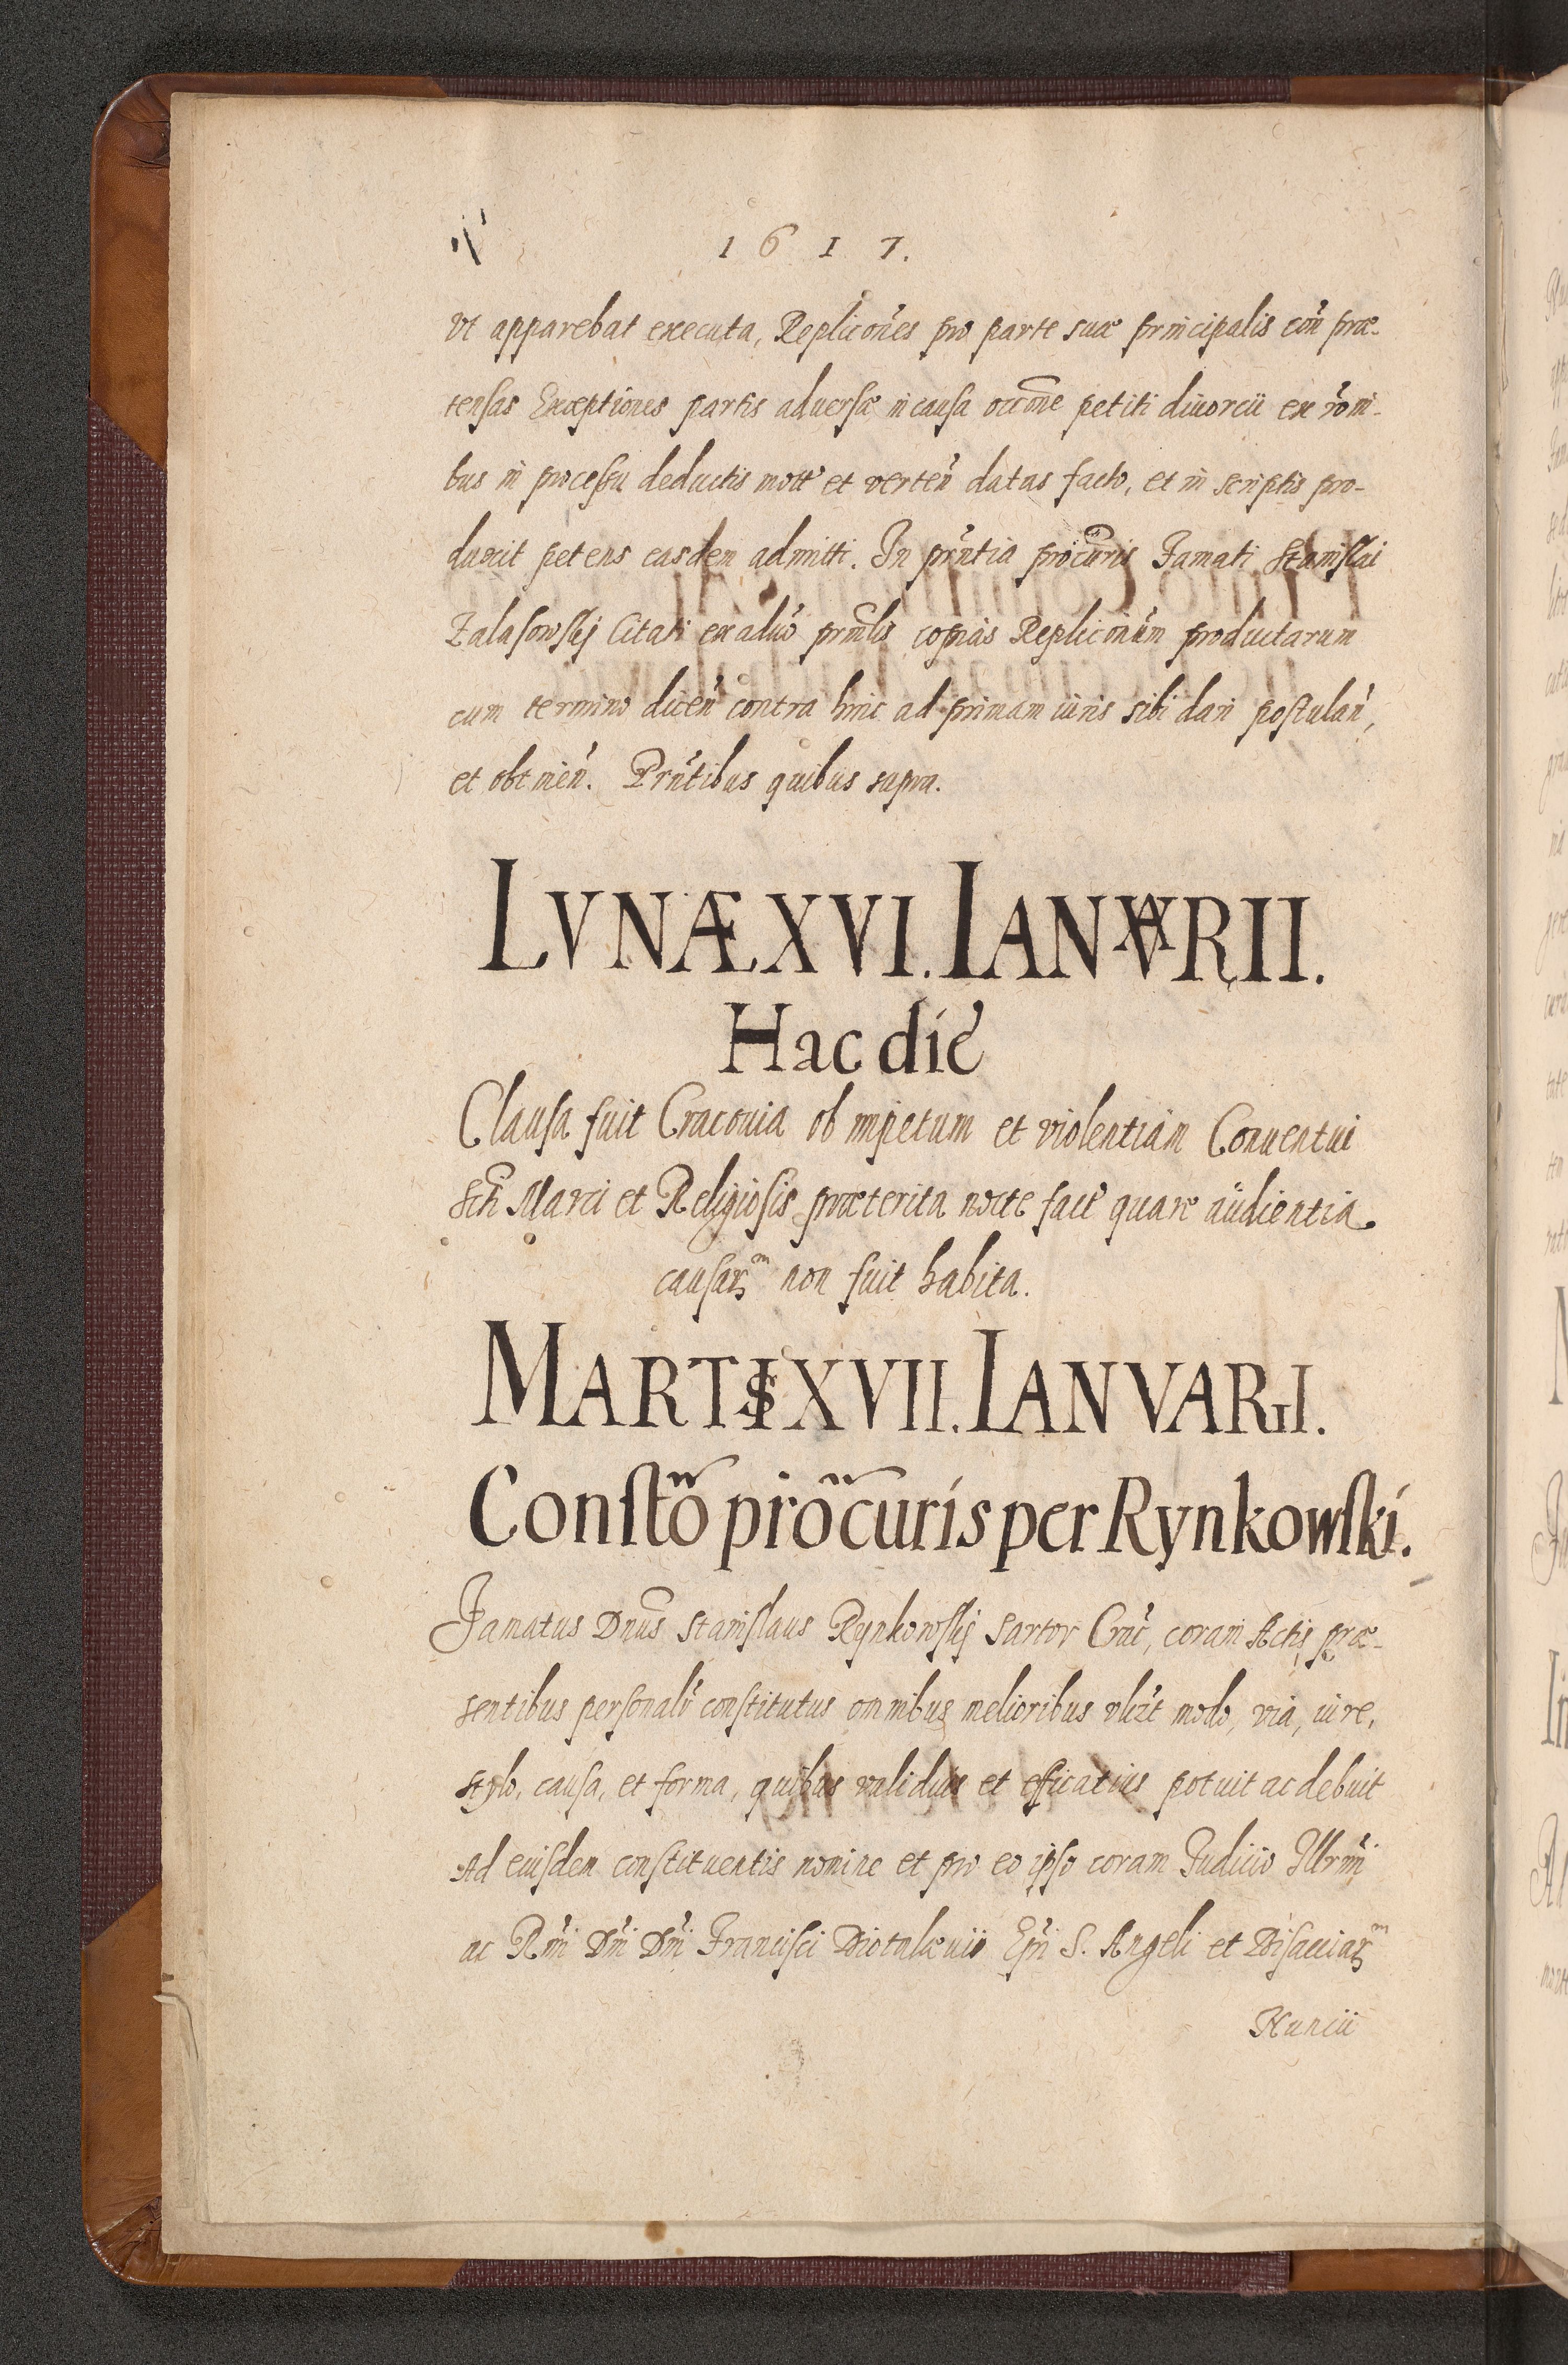 1617.
vt apparebat executa, Replicoñes pro parte suæ principalis coñ præ-
tensas Exceptiones partis aduersæ in causa occone petiti diuorcii ex roni-
bus in processu deductis mott et verteñ datas facto, et in scriptis pro-
duxit petens easdem admitti. In prñtia procuris Famati Stanislai
Zalasowskj Citati ex aduo prñlis copias Repliconum productarum
cum termino diceñ contra hinc ad primam iuris sibi dari postulañ,
et obtineñ. Prñtibus quibus supra.
LVNÆ XVI. IANVARII.
Hac die
Clausa fuit Cracouia ob impetum et violentiam Conuentui
Scti Marci et Religiosis præterita nocte fact quare audientia
causarm non fuit habita.
MARTIS XVII. IANVARII.
Constō prōcuris per Rynkowski.
Famatus Dnus Stanislaus Rynkowskj Sartor Crac, coram Actis præ-
sentibus personalr constitutus omnibus melioribus vlizt modo, via, iure,
stylo, causa, et forma, quibus validius et efficatius potuit ac debuit
Ad eiusdem constituentis nomine et pro eo ipso coram Judicio Illrmi
ac Rmi Dni Dni Francisci Diotaleuii Epi S. Angeli et Bisacciarm
Nuncii